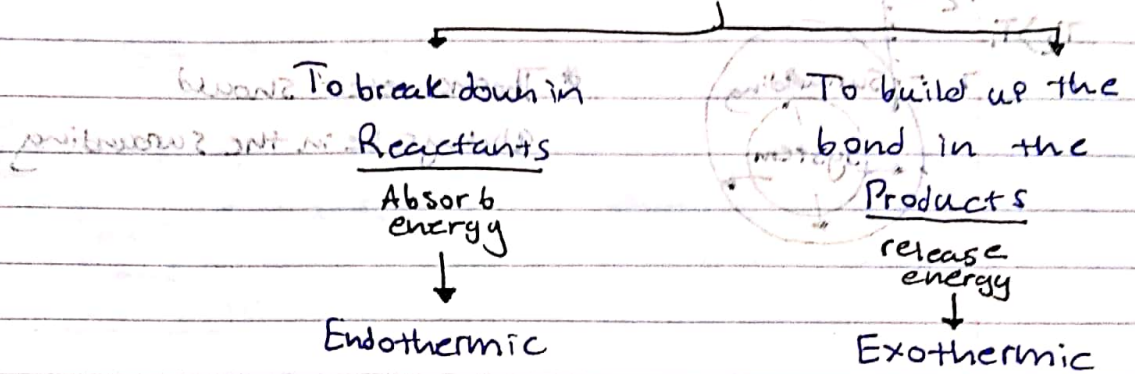 To break down in
Reactants
Absorb
energy
Endothermic
To build up the
bond in the
Products
release
energy
Exothermic